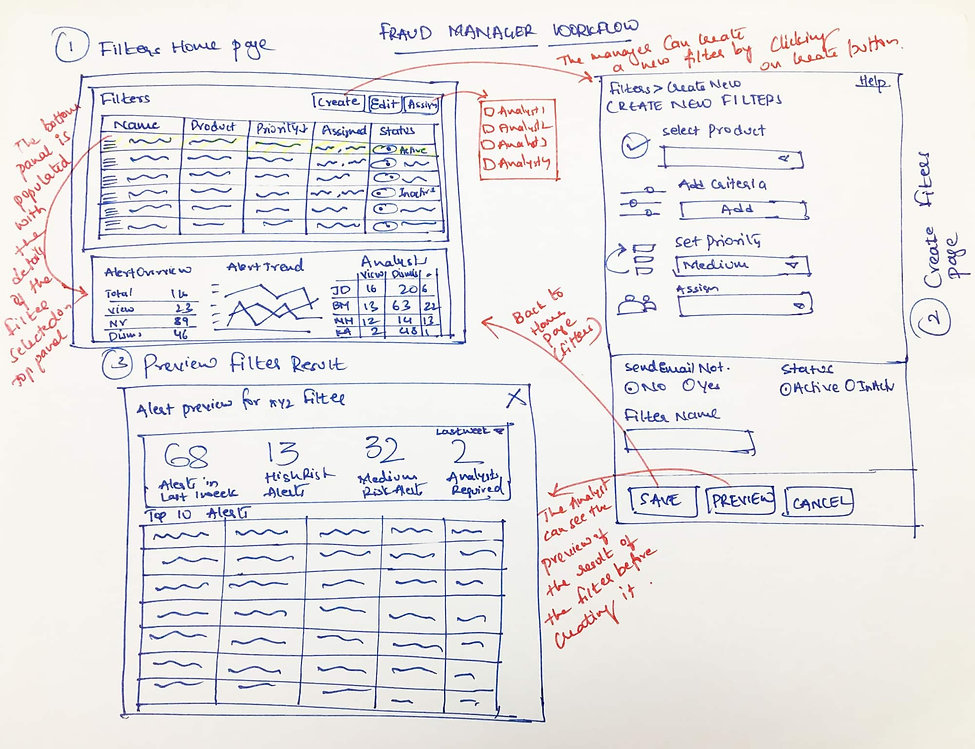 FRAUD MANAGER WORKFLOW
1 Filters Home page
Filters
Create Edit Assign
Name Product Priority Assigned Status
Active
Inactive
Analyst1
Analyst2
Analyst3
Analyst4
The bottom
panal is
populated
with
the
details
of the
filter
selected on
top panal
Alert Overview
Total 16
View 23
NV 89
Dism. 46
Alert Trend
Analyst
View Dismis -
JD 16 20 6
BM 13 63 22
NH 12 14 13
KA 2 48 1
The manager can create
a new filter by clicking
on create button.
2 Create filters
page
Filters > Create New
Help
CREATE NEW FILTERS
select Product
Add Criteria
Add
set Priority
Medium
Assign
Send Email Not.
No Yes
Status
Active InActv
Filter Name
SAVE PREVIEW CANCEL
Back to
Home
page
(filters)
3 Preview Filter Result
Alert preview for xyz filter
X
Last week
68
Alerts in
Last 1 week
13
High Risk
Alerts
32
Medium
Risk Alerts
2
Analysts
Required
Top 10 Alerts
The Analyst
can see the
preview of
the result of
the filter before
creating it.